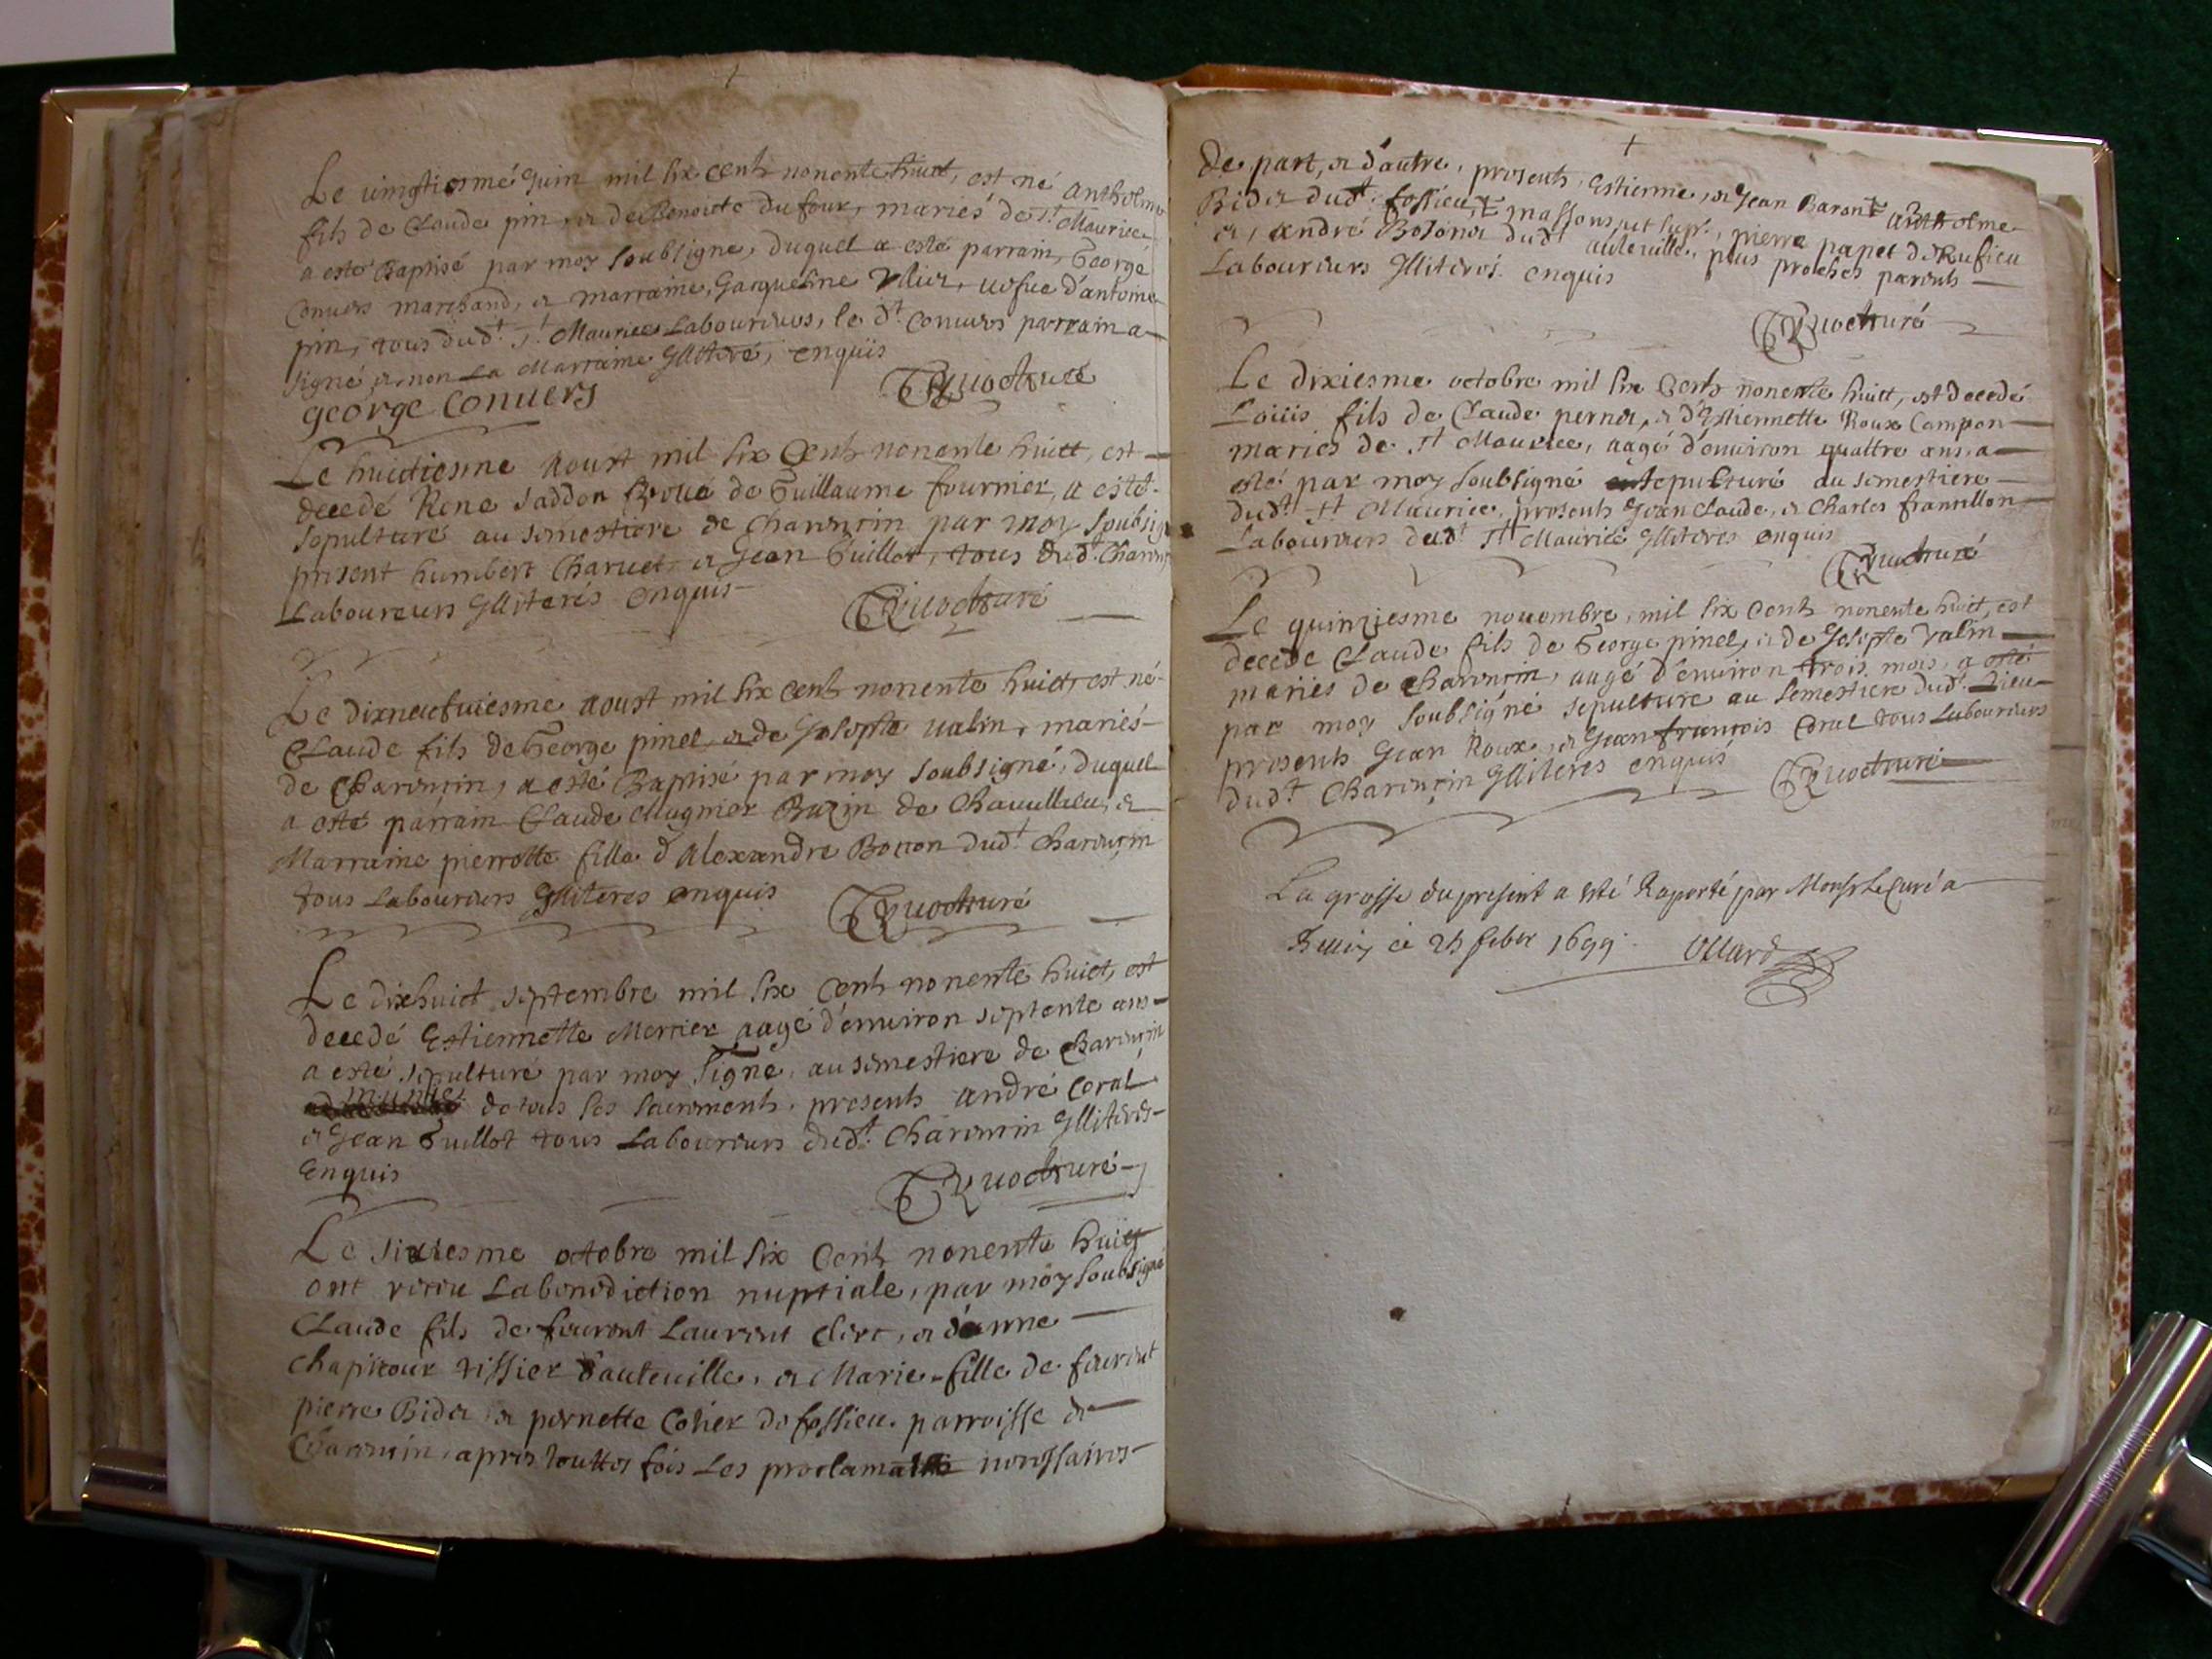 Le vingtiesme Juin mil six cents nonente huict, est né Antholme
fils de Claude pin, et de Benoicte du four, mariés de St Maurice
a esté Baptisé par moy soubsigné, duquel a esté parrain, George
Convers marchand, et marraine, Jacquesme, vefve d'antoine
pin, tous dudt St Maurice Laboureurs, le dt Convers parrain a
signé et non La Marraine Illiteré, enquis
george Convers
Le huictiesme Aoust mil six Cents nonente huict, est
decedé René Saddon de Guillaume fournier, a esté
sepulturé au semestiere de Charencin par moy soubsig
present humbert Charvet et Jean Guillot, tous dudt Charen
Laboureurs Illiterés enquis
Le dixneufviesme Aoust mil six cents nonente huict, est né
Claude fils de George pinel, et de Josepte valin, mariés
de Charencin, a esté Baptisé par moy soubsigné, duquel
a esté parrain Claude Mugnier Bazin de Chavillieu, et
Marraine pierrotte fille d'Alexandre Botton dudt Charencin
tous Laboureurs Illiteres enquis
Le dixhuict septembre mil six Cents nonente huict, est
decedé Estiennette Mercier aagé d'environ septente ans
a esté sepulturé par moy signé, au semestiere de Charencin
munie de tous les sacrements, presents André Coral
et Jean Guillot tous Laboureurs dudt Charencin Illiterés
Enquis
Le sixiesme octobre mil six Cents nonente huict
ont receu La benediction nuptiale, par moy soubsigné
Claude fils de feurent Laurent Clerc, et d'anne
Chapitour tissier d'auteville, et Marie fille de feurent
pierre Bidet et pernette Cotier de fossieu parroisse de
Charencin, apres touttes fois Les proclama necessaires
de part, et d'autre, presents, Estienne, et Jean Baron Antholme
Bidet dudt fossieu massons, pierre papet de Rufieu
et, André dudt auteville, plus proches parents
Laboureurs Illiterés enquis
Le dixiesme octobre mil six Cents nonente huict, est decedé
Loüis fils de Claude pernet, et d'Estiennette Roux Campon
mariés de St Maurice, aagé d'environ quattre ans, a
esté par moy soubsigné sepulturé au semestiere
dudt St Maurice, presents Jean Claude, et Charles francillon
Laboureurs dudt St Maurice Illiteres enquis
Le quinziesme novembre, mil six Cents nonente huict, est
decedé Claude fils de George pinel, et de Josepte valin
mariés de Charencin, aagé d'environ trois mois, a esté
par moy soubsigné sepulturé au semestiere dudt Lieu
presents Jean Roux, et Jean françois Coral tous Laboureurs
dudt Charencin Illiteres enquis
La grosse du present a esté Raporté par Monsr Le Curé a
Belley ce 25 feber 1699